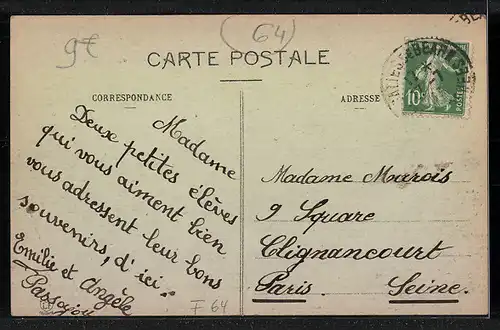 97
(64)
CARTE POSTALE
CORRESPONDANCE
ADRESSE
10
POSTES
Madame
Deux petites élèves
qui vous aiment bien
vous adressent leur bons
souvenirs, d'ici.
Emilie et Angèle
Madame Marois
9 Square
Clignancourt
Paris. Seine.
F 64